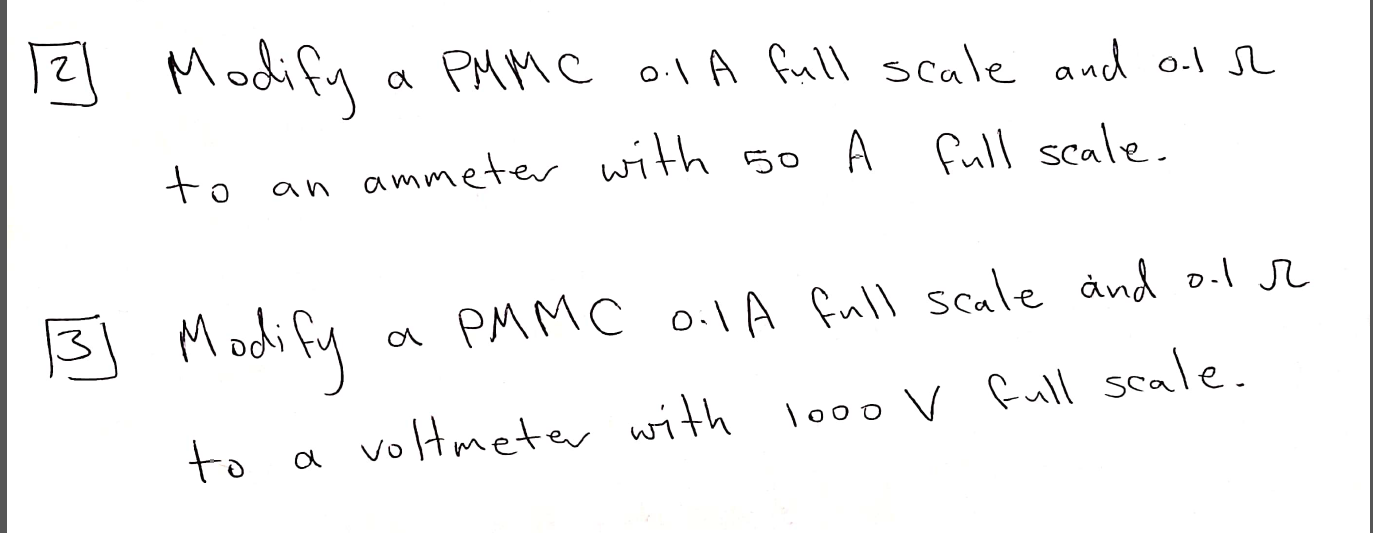 2 Modify a PMMC 0.1 A full scale and 0.1 Ω
to an ammeter with 50 A full scale.
3 Modify a PMMC 0.1A full scale and 0.1 Ω
to a voltmeter with 1000 V full scale.